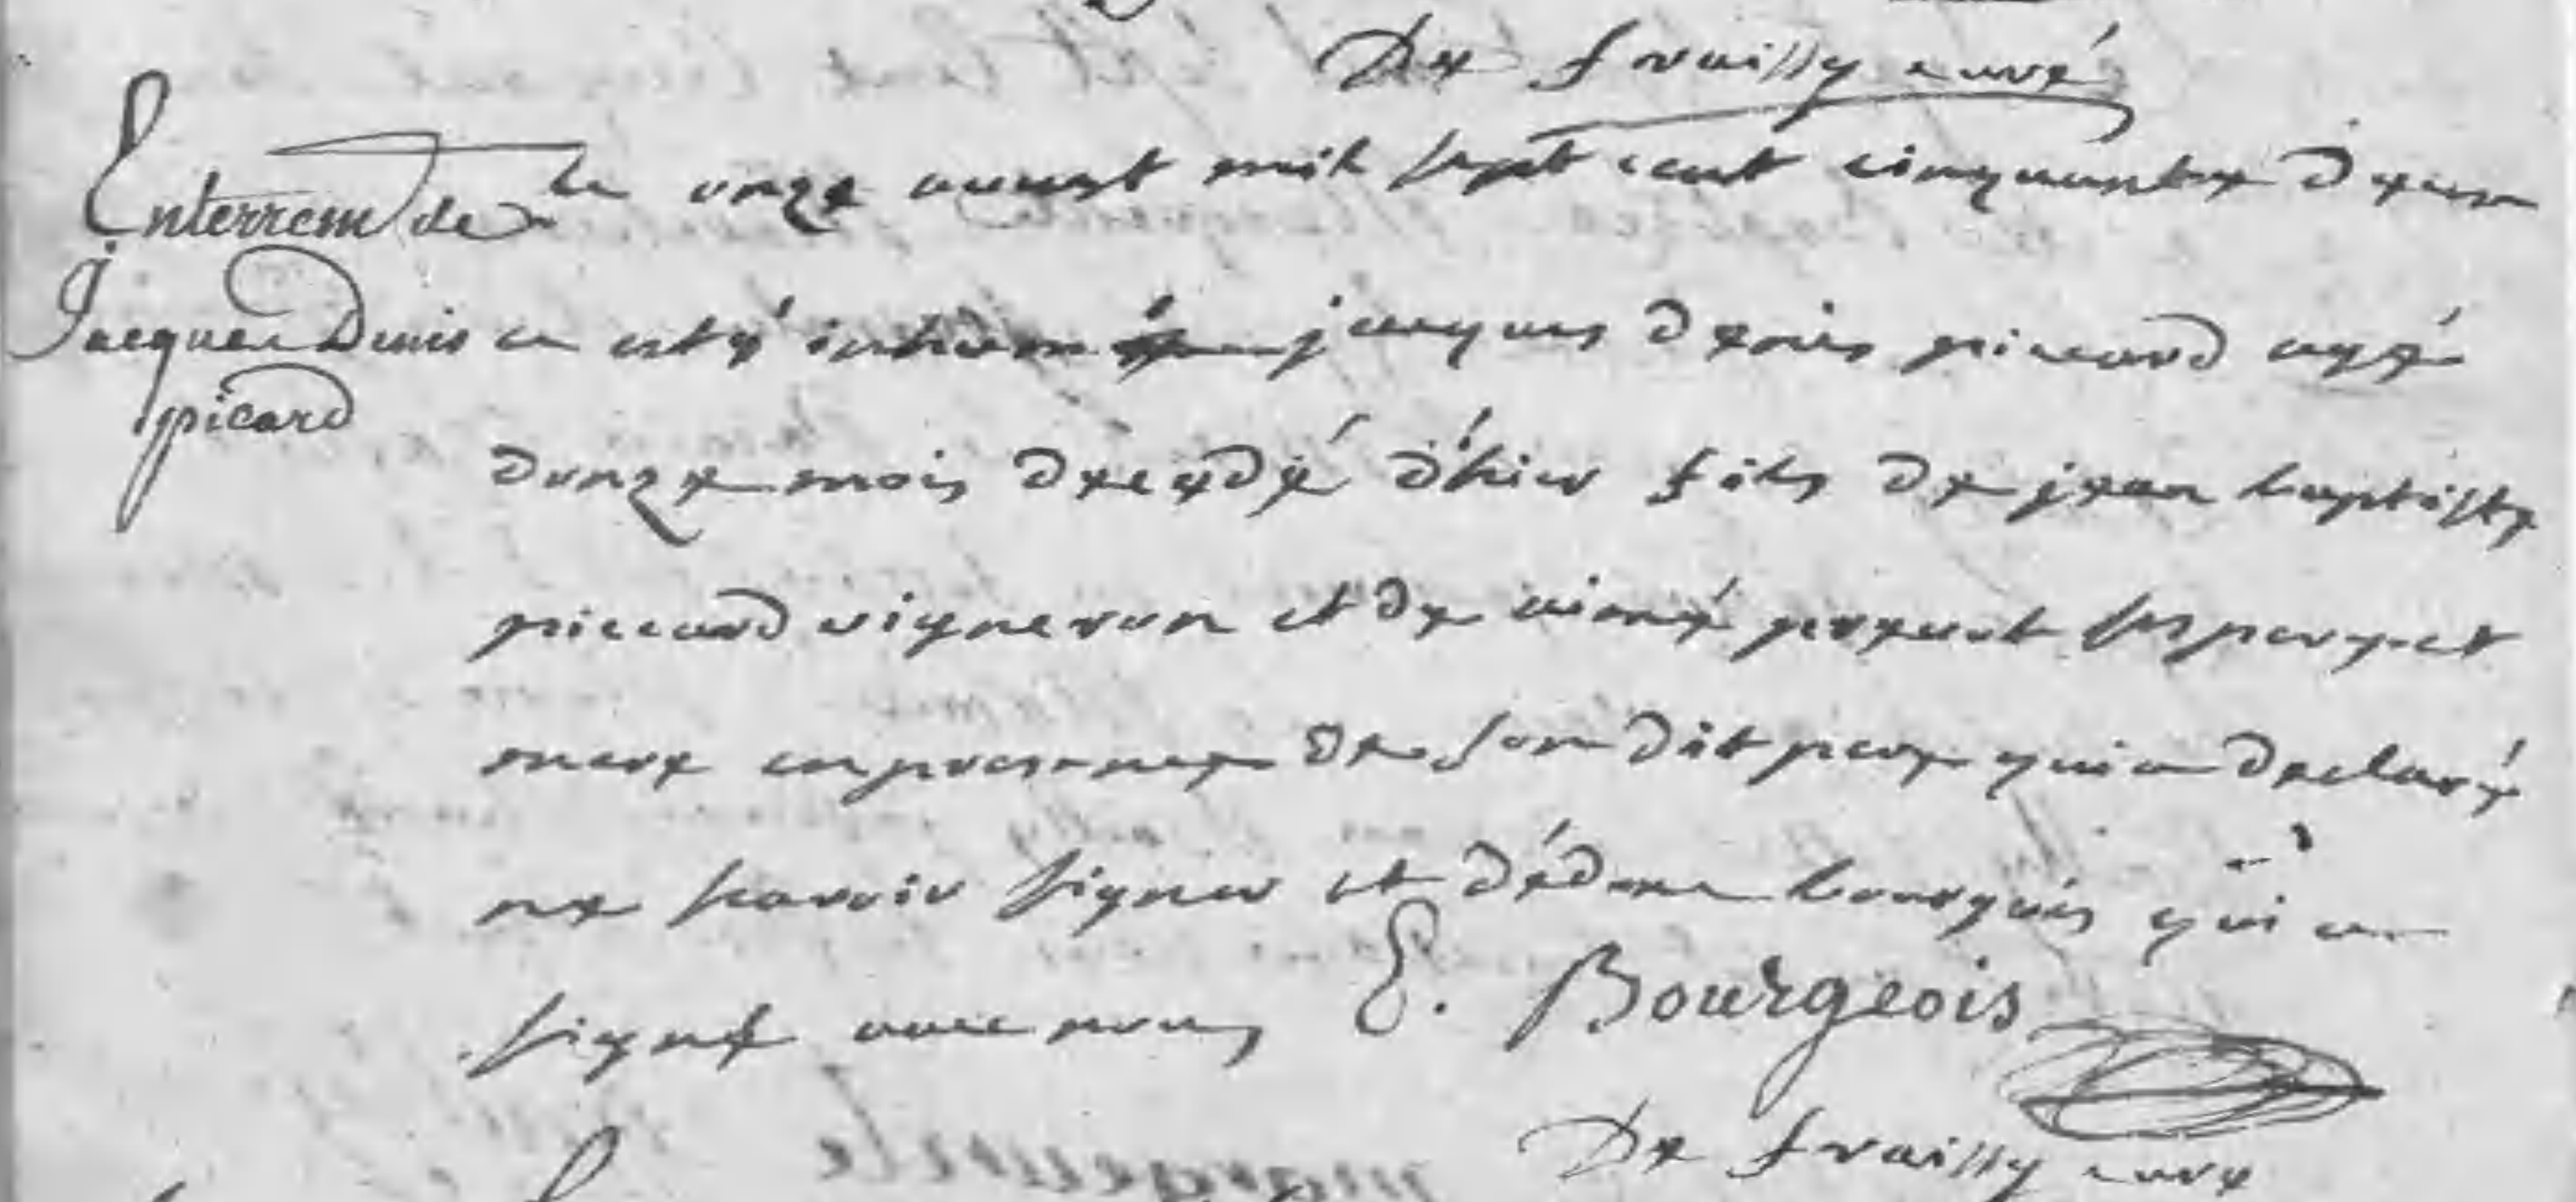 De frailly curé
Enterrem de
Jacques Denis
picard
le onze aoust mil sept cent cinquante deux
a esté inhumé jacques denis piccard agé
donze mois decedé d'hier fils de jean baptiste
piccard vigneron et de aimé ses pere et
mere en presence de son dit pere qui a declaré
ne scavoir signer et d'édme bourgeois qui a
signé avec nous E. Bourgeois
De frailly curé